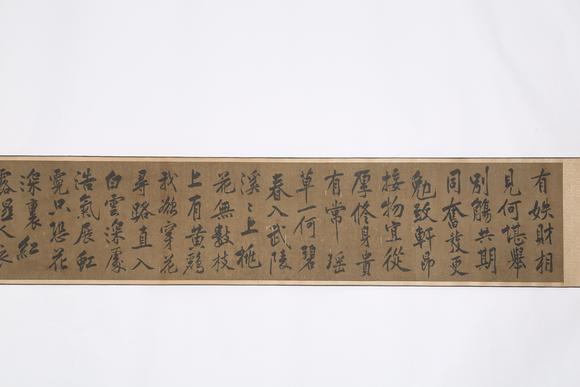 有財相
見何堪舉
別觴共期
同奮發更
勉致軒昂
接物宜從
厚修身貴
有常 瑤
草一何碧
春入武陵
溪〻上桃
花無數枝
上有黃鸝
我欲穿花
尋路直入
白雲深處
浩氣展虹
霓只恐花
深裏紅
露濕人衣